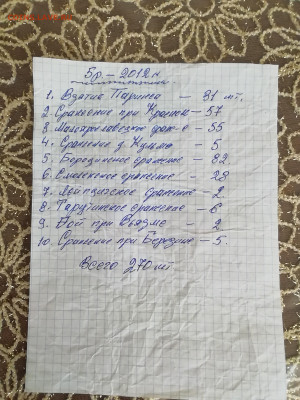 5р. - 2012г.
1. Взятие Парижа - 31 шт.
2. Сражение при Красном - 57
3. Малоярославецкое сраж-е - 55
4. Сражение у Кульма - 5
5. Бородинское сражение - 82
6. Смоленское сражение - 28
7. Лейпцигское сражение - 2
8. Тарутинское сражение - 6
9. Бой при Вязьме - 2
10. Сражение при Березине - 5
Всего 270 шт